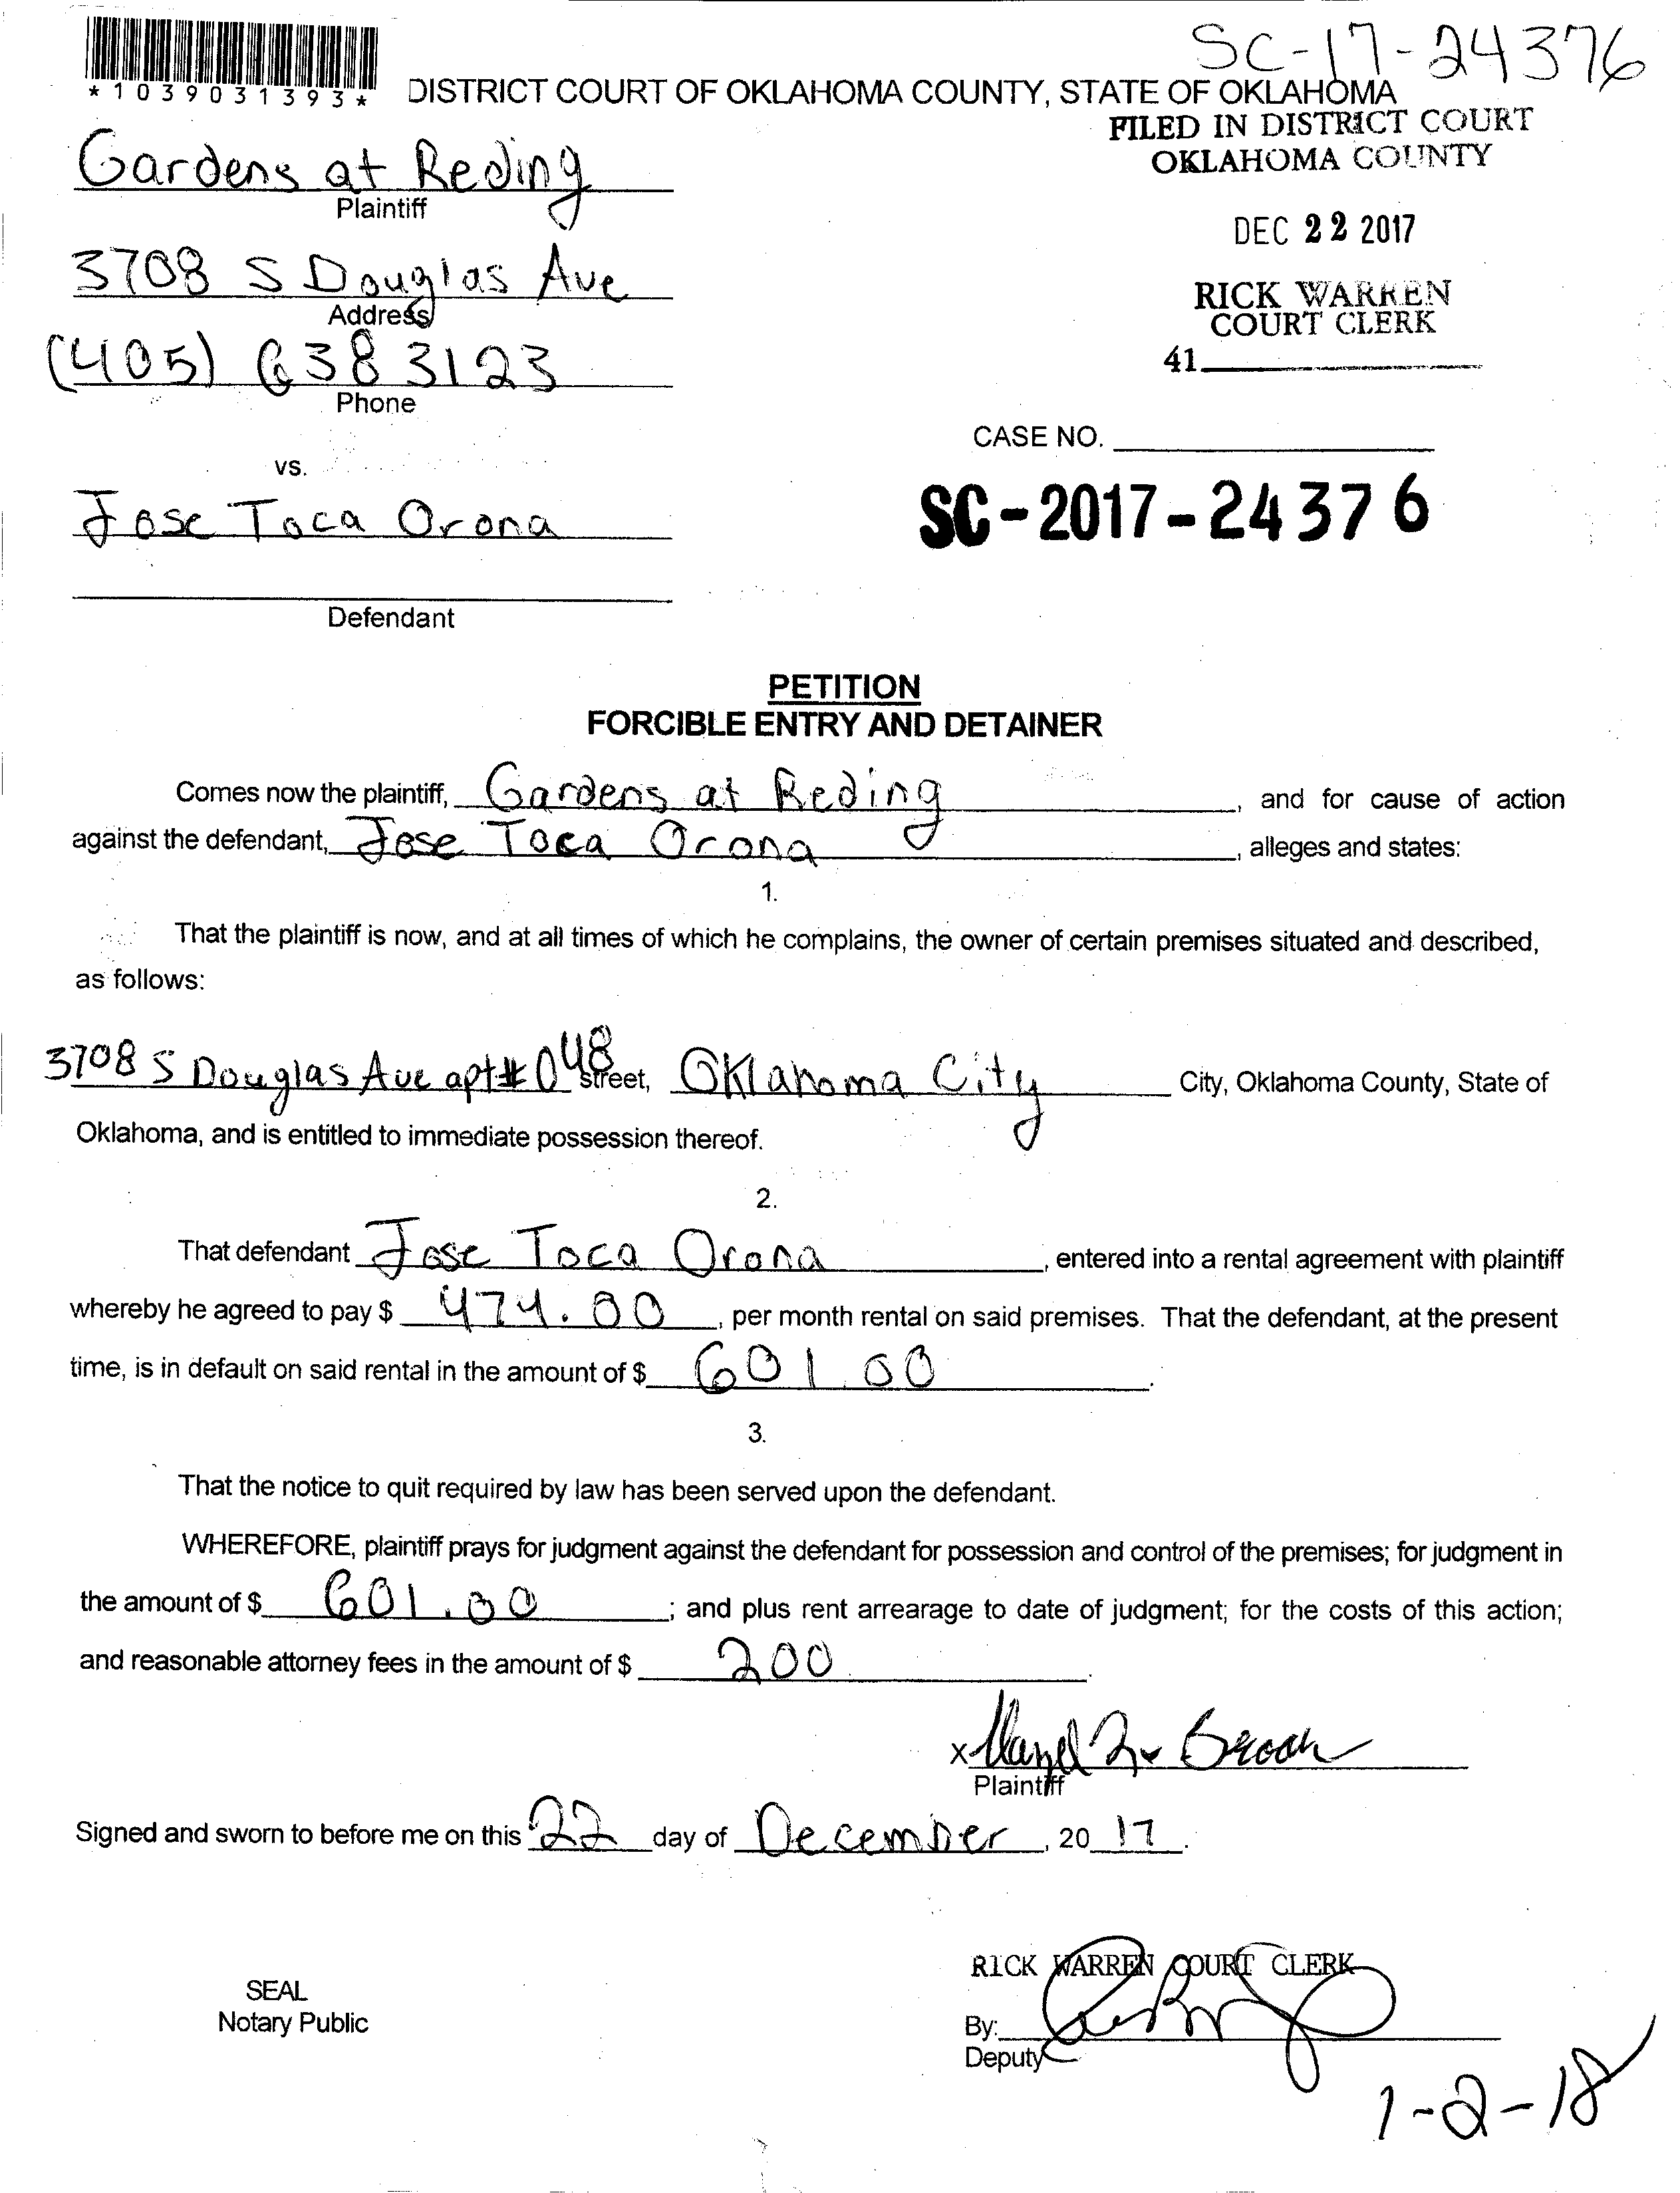 SC-17-24376
*1039031393*
DISTRICT COURT OF OKLAHOMA COUNTY, STATE OF OKLAHOMA
FILED IN DISTRICT COURT
OKLAHOMA COUNTY
Gardens at Reding
Plaintiff
DEC 22 2017
3708 S Douglas Ave
Address
RICK WARREN
COURT CLERK
41
(405) 638 3123
Phone
CASE NO.
vs.
SC-2017-24376
Jose Toca Orona
Defendant
PETITION
FORCIBLE ENTRY AND DETAINER
Comes now the plaintiff, Gardens at Reding, and for cause of action
against the defendant, Jose Toca Orona, alleges and states:
1.
That the plaintiff is now, and at all times of which he complains, the owner of certain premises situated and described,
as follows:
3708 S Douglas Ave apt# 048 street, Oklahoma City City, Oklahoma County, State of
Oklahoma, and is entitled to immediate possession thereof.
2.
That defendant Jose Toca Orona, entered into a rental agreement with plaintiff
whereby he agreed to pay $ 474.00, per month rental on said premises. That the defendant, at the present
time, is in default on said rental in the amount of $ 601.00.
3.
That the notice to quit required by law has been served upon the defendant.
WHEREFORE, plaintiff prays for judgment against the defendant for possession and control of the premises; for judgment in
the amount of $ 601.00; and plus rent arrearage to date of judgment; for the costs of this action;
and reasonable attorney fees in the amount of $ 200.
x
Plaintiff
Signed and sworn to before me on this 22 day of December, 20 17.
RICK WARREN COURT CLERK
SEAL
Notary Public
By:
Deputy
1-2-18